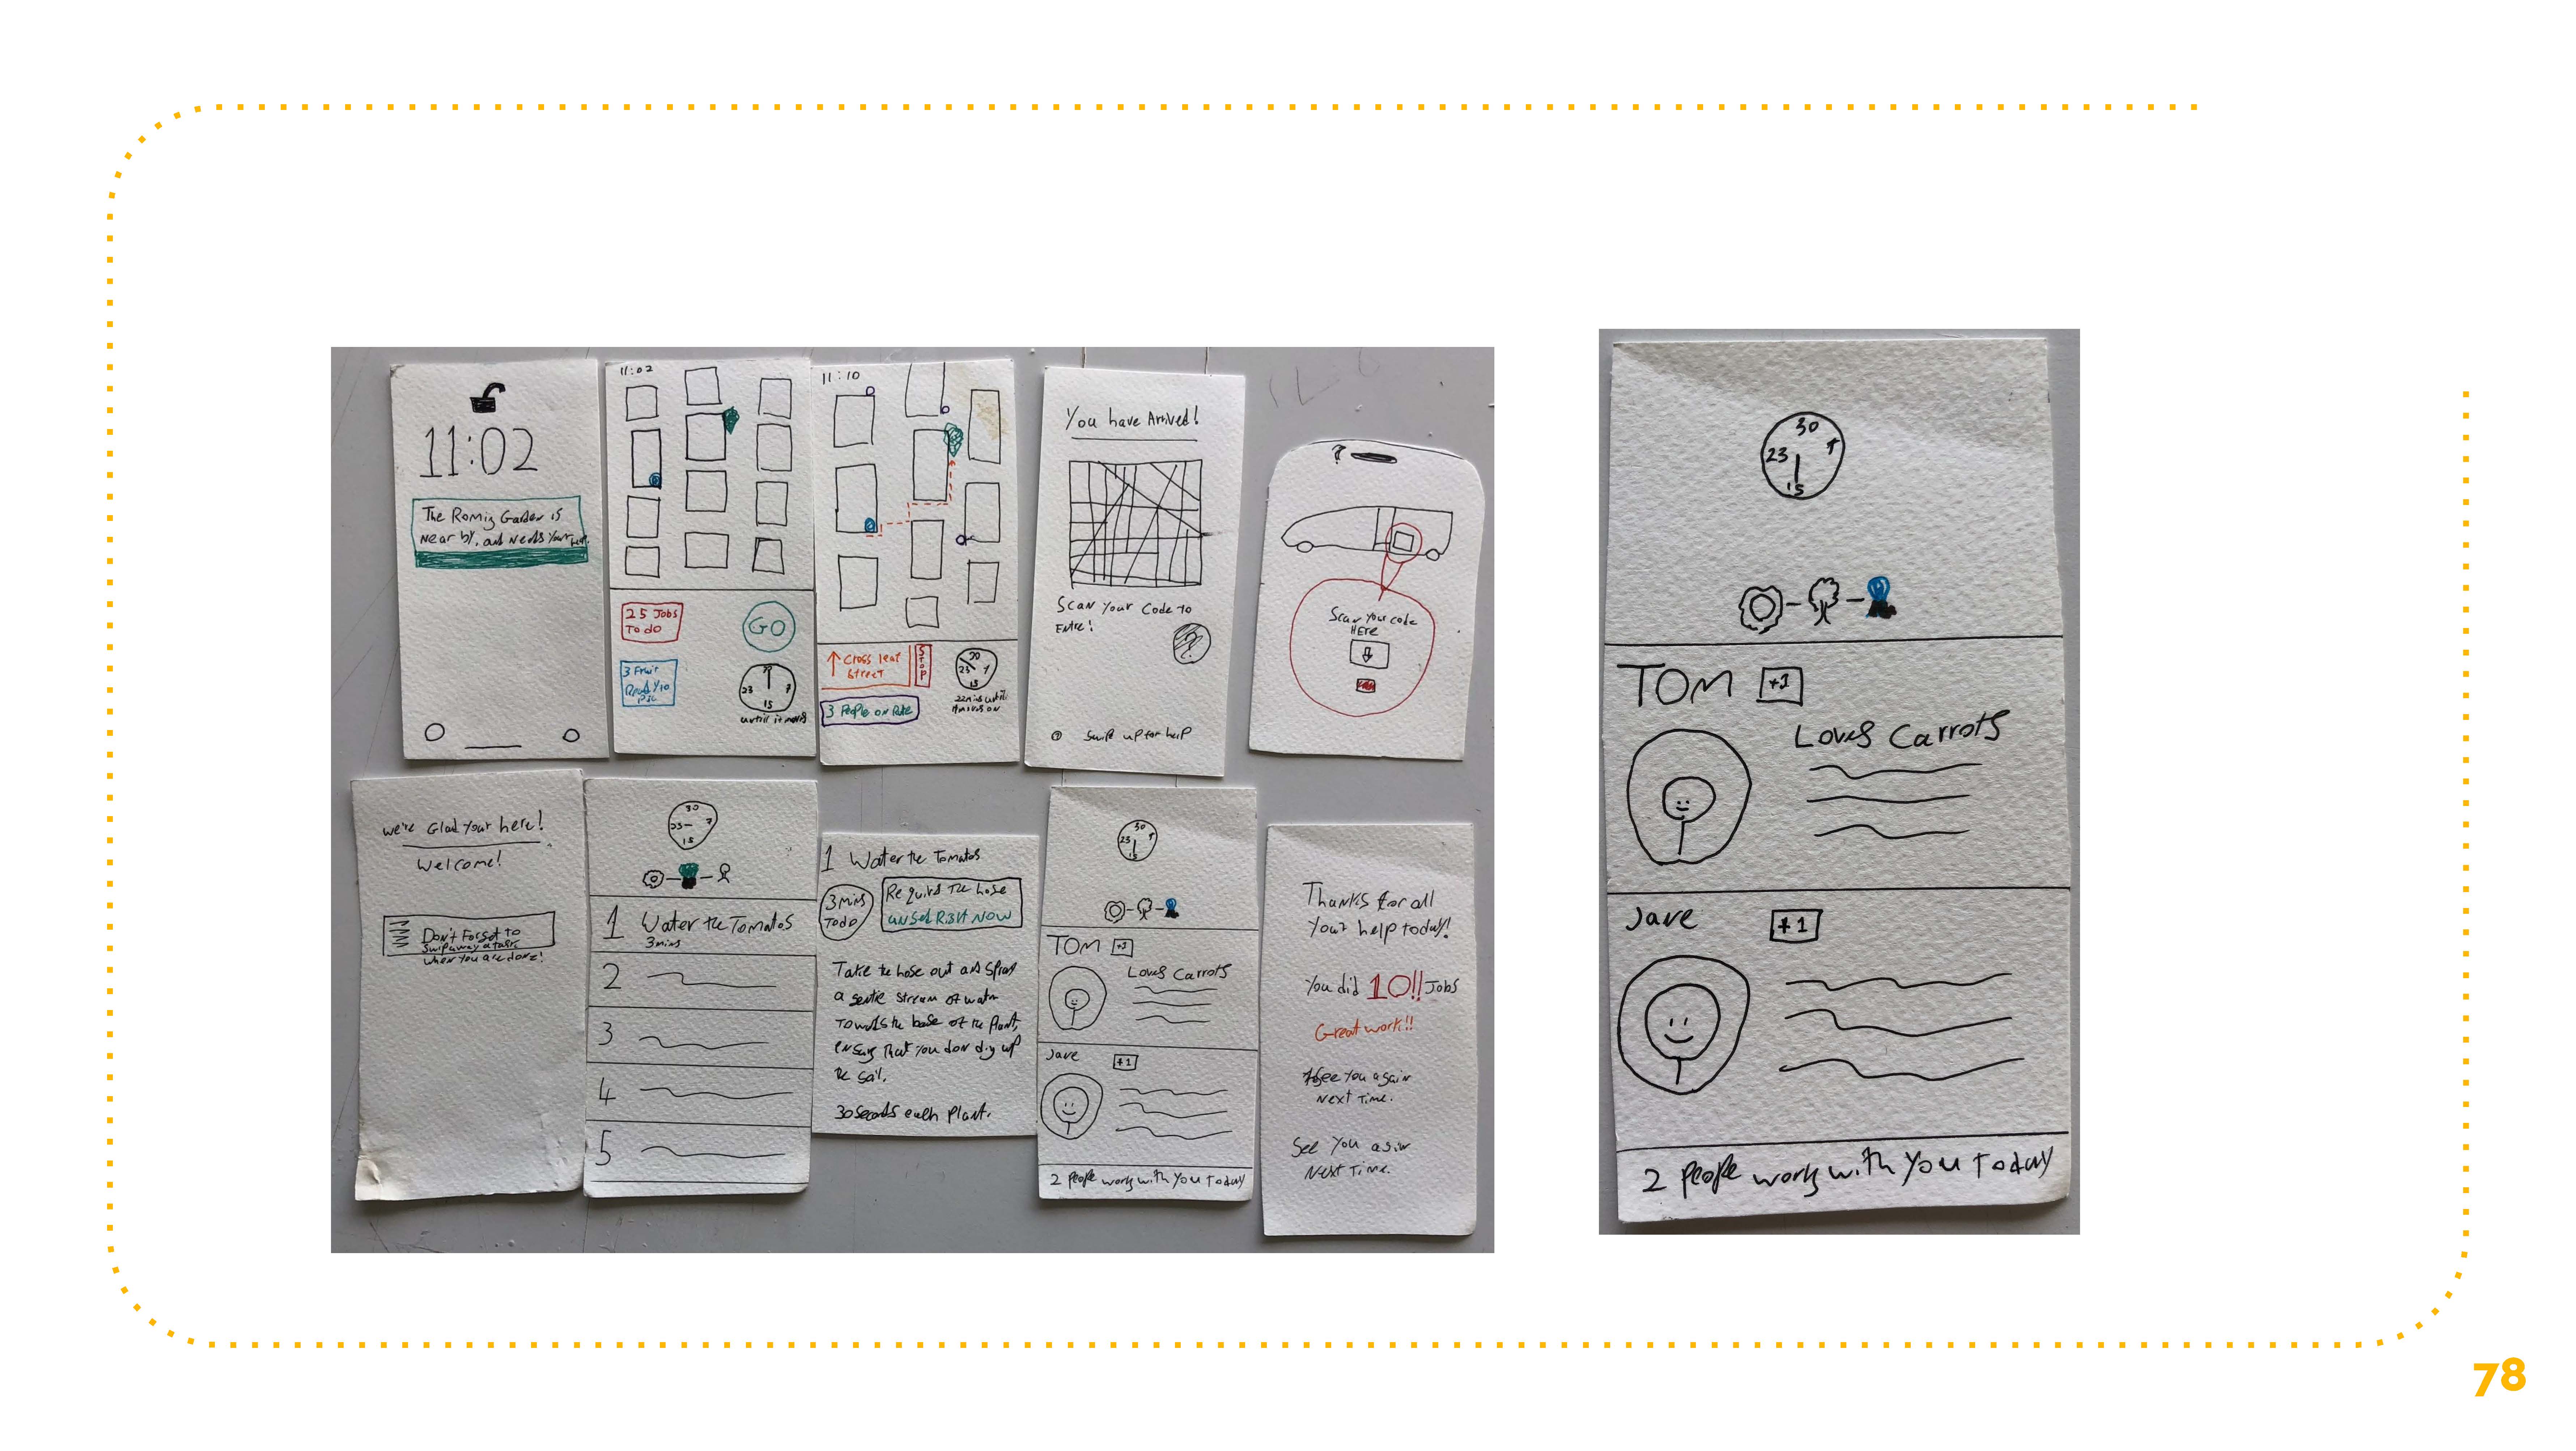 11:02
The Roming Garden is
near by, and needs your help.
11:02
25 Jobs
To do
GO
3 Fruit
Ready to
Pic
30
23 7
15
until it moves
11:10
↑ Cross leaf
street
STOP
3 People on Rute
30
23 7
15
22 mins until
it moves on
You have Arrived!
Scan Your Code to
Entre!
?
Swip up for help
?
Scan Your code
HERE
we're Glad your here!
Welcome!
Don't Forget to
Swip away a task
when you are done!
30
23 7
15
1 Water the Tomatos
3 mins
2
3
4
5
1 Water the Tomatos
3 mins
Todo
Required The hose
unsed Right Now
Take the hose out and spray
a gentle stream of water
Towards the base of the Plant,
ensuring that you don dig up
the soil.
30 seconds each plant.
30
23 7
15
TOM +1
Loves Carrots
Jave +1
2 People work with you Today
Thanks for all
Your help today!
You did 10!! Jobs
Great work!!
See You again
Next Time.
See You again
Next Time.
30
23 7
15
TOM +1
Loves Carrots
Jave +1
2 People work with you Today
78